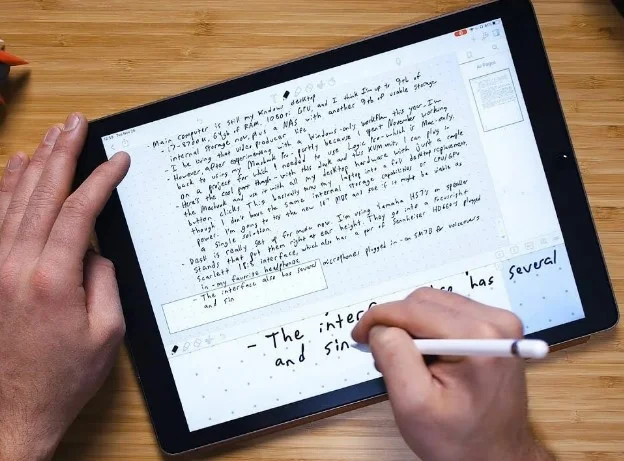 - Main computer is still my Windows desktop
- i7-8700K, 64gb of RAM, 1080ti GPU, and I think I'm up to 9tb of
internal storage now, plus a NAS with another 9tb of usable storage.
- I be living that video producer life
- However, after experimenting with a Windows-only workflow this year, I'm
back to using my MacBook Pro - partly because I spent November working
on a project for which I needed to use Logic Pro, which is Mac-only.
- Here's the cool part though: with this desk and this KVM unit, I can plug in
the MacBook and use it with all my desktop hardware with just a single
button click. This basically turns my laptop into a full desktop replacement,
though I don't have the same internal storage capabilities or CPU/GPU
power. I'm going to try the new 16" MBP and see if it might be viable as
a single solution.
- Desk is really set up for audio now. I'm using Yamaha HS7s on speaker
stands that put them right at ear height. They go into a Focusrite
Scarlett interface, which also has a pair of Sennheiser HD650s plugged
in - my favorite headphones.
- The interface also has several microphones plugged in - an SM7B for voiceovers
and sin
- The interf has several
and sin